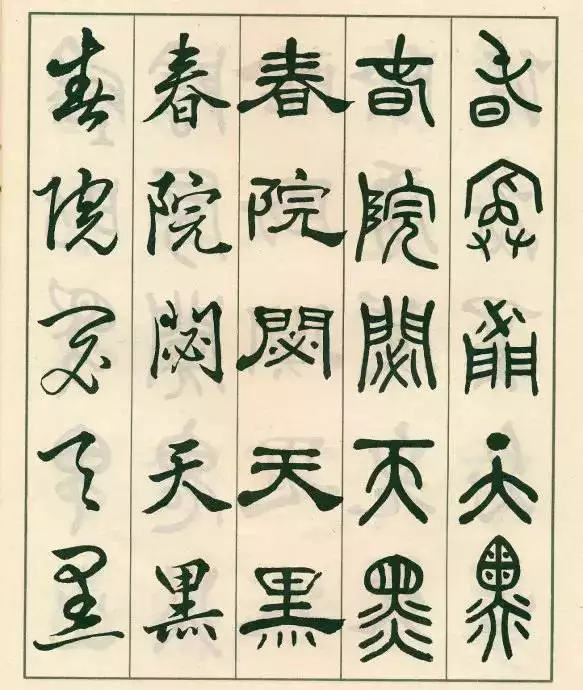 春院閟天黑
春院閟天黑
春院閟天黑
春院閟天黑
春院閟天黑